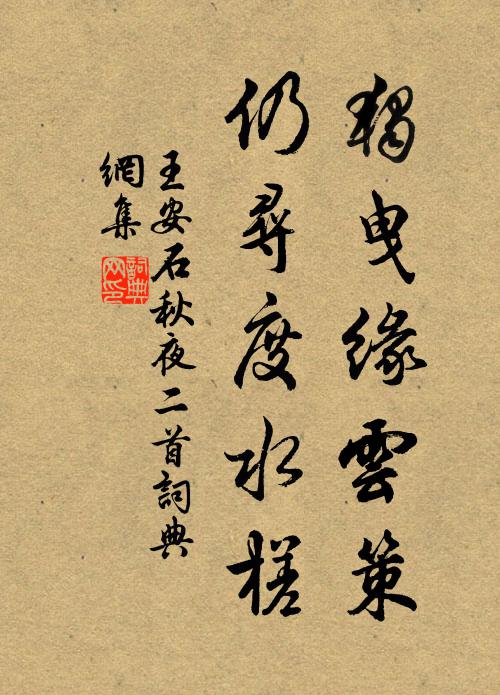 獨曳緣雲策
仍尋度水槎
王安石秋夜二首詞典
網集
詞典網印